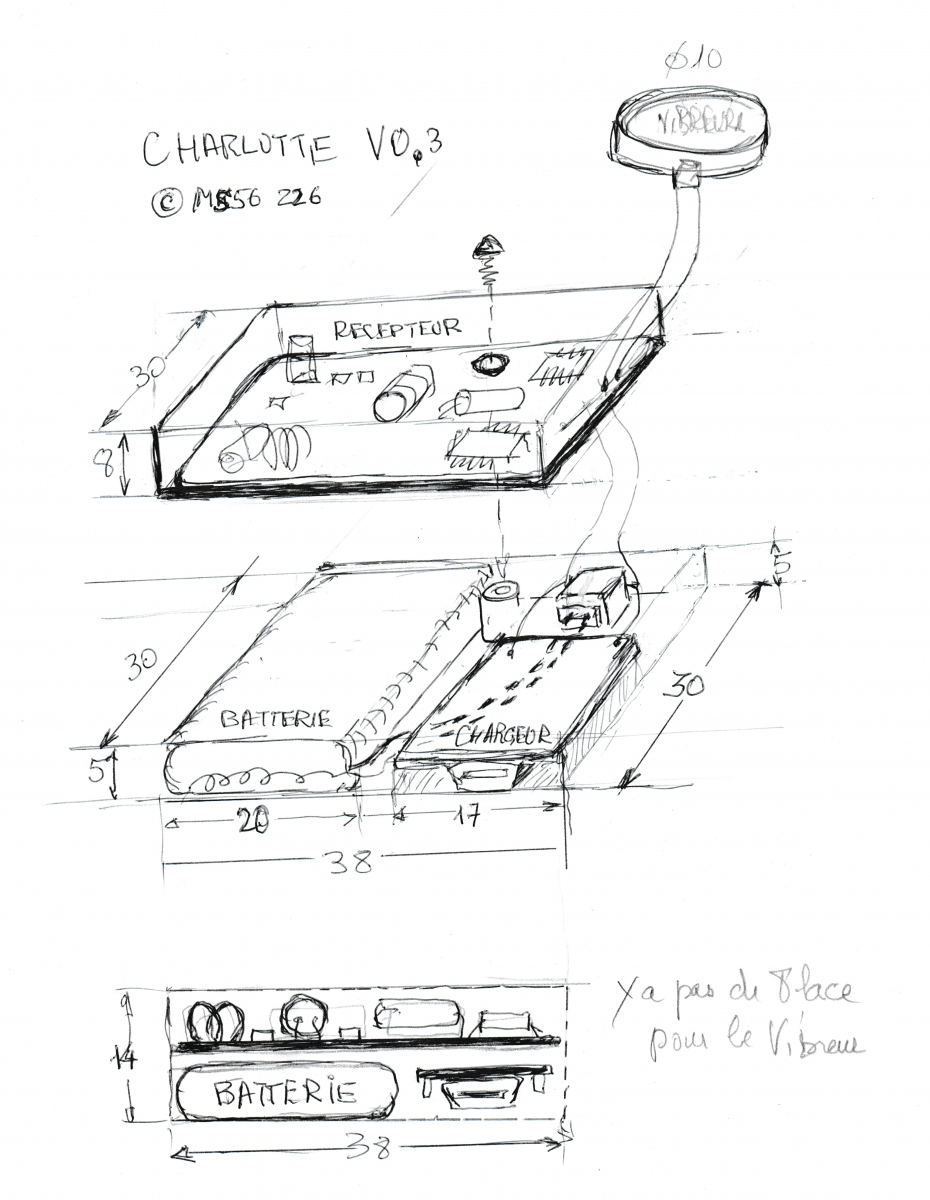 Ø10
VIBREUR
CHARLOTTE V0.3
© MS56 226
RECEPTEUR
30
8
5
30
BATTERIE
30
CHARGEUR
5
20
17
38
Y a pas de Place
pour le Vibreur
14
BATTERIE
38